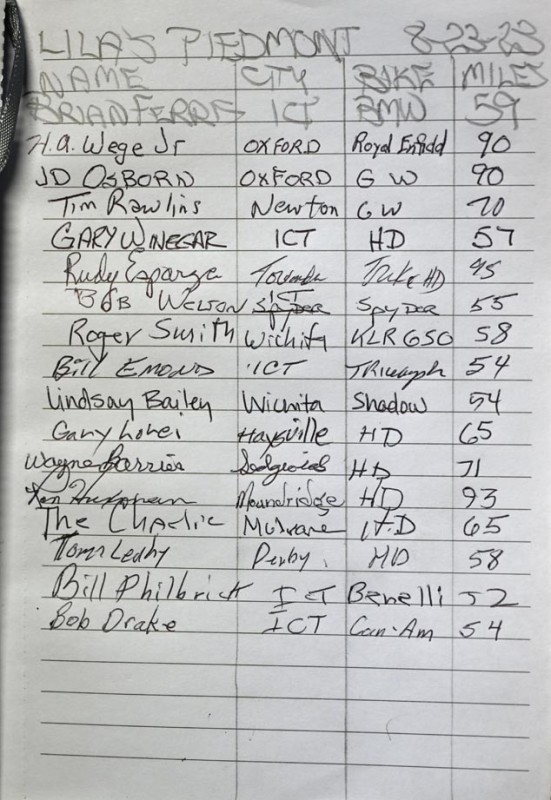 LILA'S PIEDMONT 8-23-23
NAME CITY BIKE MILES
BRIAN FERRIS ICT BMW 59
H.A. Wege Jr OXFORD Royal Enfield 90
JD OSBORN OXFORD G W 90
Tim Rawlins Newton GW 70
GARY WINEGAR ICT HD 57
Rudy Esparza HD 45
BOB WELTON ICT SPYDER 55
Roger Smith Wichita KLR 650 58
Bill EMOND ICT TRiumph 54
Lindsay Bailey Wichita Shadow 54
Gary Haysville HD 65
Wayne Barrier Sedgwick HD 71
Moundridge HD 93
The Mulvane HD 65
Tom Leahy Derby HD 58
Bill Philbrick ICT Benelli 52
Bob Drake ICT Can-Am 54